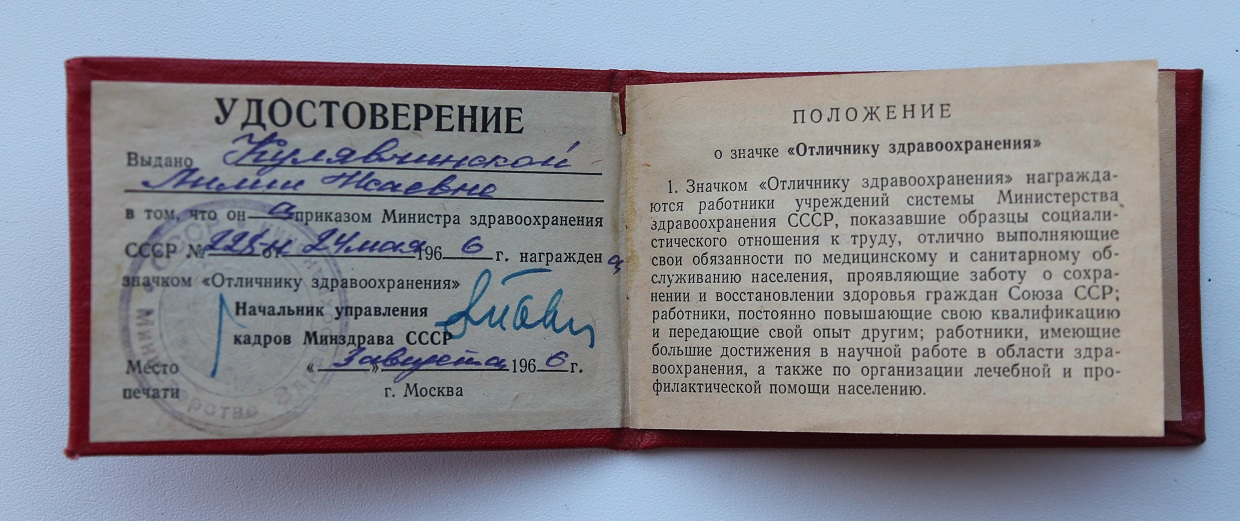 УДОСТОВЕРЕНИЕ
Выдано Кулявчинской
Лилии Исаевне
в том, что он а приказом Министра здравоохранения
СССР № 225-н от 24 мая 1966 г. награжден а
значком «Отличнику здравоохранения»
Начальник управления
кадров Минздрава СССР
Место
печати
« 3 » августа 1966 г.
г. Москва
ПОЛОЖЕНИЕ
о значке «Отличнику здравоохранения»
1. Значком «Отличнику здравоохранения» награжда-
ются работники учреждений системы Министерства
здравоохранения СССР, показавшие образцы социали-
стического отношения к труду, отлично выполняющие
свои обязанности по медицинскому и санитарному об-
служиванию населения, проявляющие заботу о сохра-
нении и восстановлении здоровья граждан Союза ССР;
работники, постоянно повышающие свою квалификацию
и передающие свой опыт другим; работники, имеющие
большие достижения в научной работе в области здра-
воохранения, а также по организации лечебной и про-
филактической помощи населению.